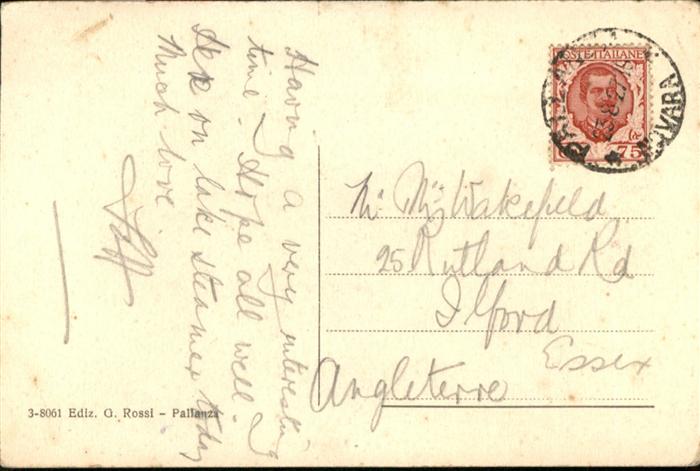 Having a very interesting
time. Hope all well.
on lake steamer today
Much love
POSTE ITALIANE
75
23.8.27
NOVARA
Wakefield
25 Rutland Rd
Ilford
Essex
Angleterre
3-8061 Ediz. G. Rossi – Pallanza